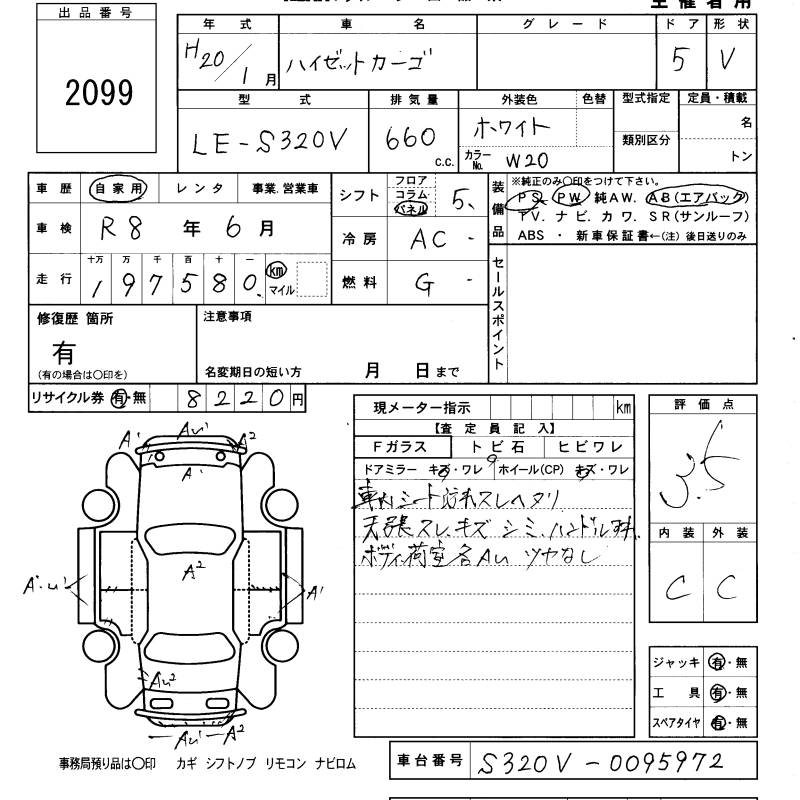 主 催 者 用
出 品 番 号
2099
年 式
車 名
グ レ ー ド
ド ア
形 状
H20/1月
ハイゼットカーゴ
5
V
型 式
排 気 量
外装色
色替
型式指定
定員・積載
LE-S320V
660
c.c.
ホワイト
名
カラーNo.
W20
類別区分
トン
車 歴
自 家 用
レ ン タ
事業.営業車
シフト
フロア
コラム
パネル
5.
装備品
※純正のみ〇印をつけて下さい。
PS. PW. 純AW. AB(エアバック)
TV. ナビ. カワ. SR(サンルーフ)
ABS ・ 新車保証書←(注) 後日送りのみ
車 検
R8 年 6 月
冷 房
AC -
走 行
十万 万 千 百 十 一
1 9 7 5 8 0.
km
マイル
燃 料
G -
セールスポイント
修復歴 箇所
有
(有の場合は〇印を)
注意事項
名変期日の短い方 月 日まで
リサイクル券 有・無
8 2 2 0 円
現メーター指示
km
【 査 定 員 記 入 】
Fガラス
ト ビ 石
ヒ ビ ワ レ
ドアミラー キズ・ワレ
ホイール(CP) キズ・ワレ
車内シート汚れスレヘタリ
天張スレ.キズ シミ.ハンドルスレ
ボディ荷室各AU ツヤなし
評 価 点
3.5
内 装
外 装
C
C
A' AU' A²
A'
A²
A'.U'
A'
AU²
AU' A²
ジャッキ 有・無
工 具 有・無
スペアタイヤ 有・無
事務局預り品は〇印 カギ シフトノブ リモコン ナビロム
車台番号
S320V-0095972